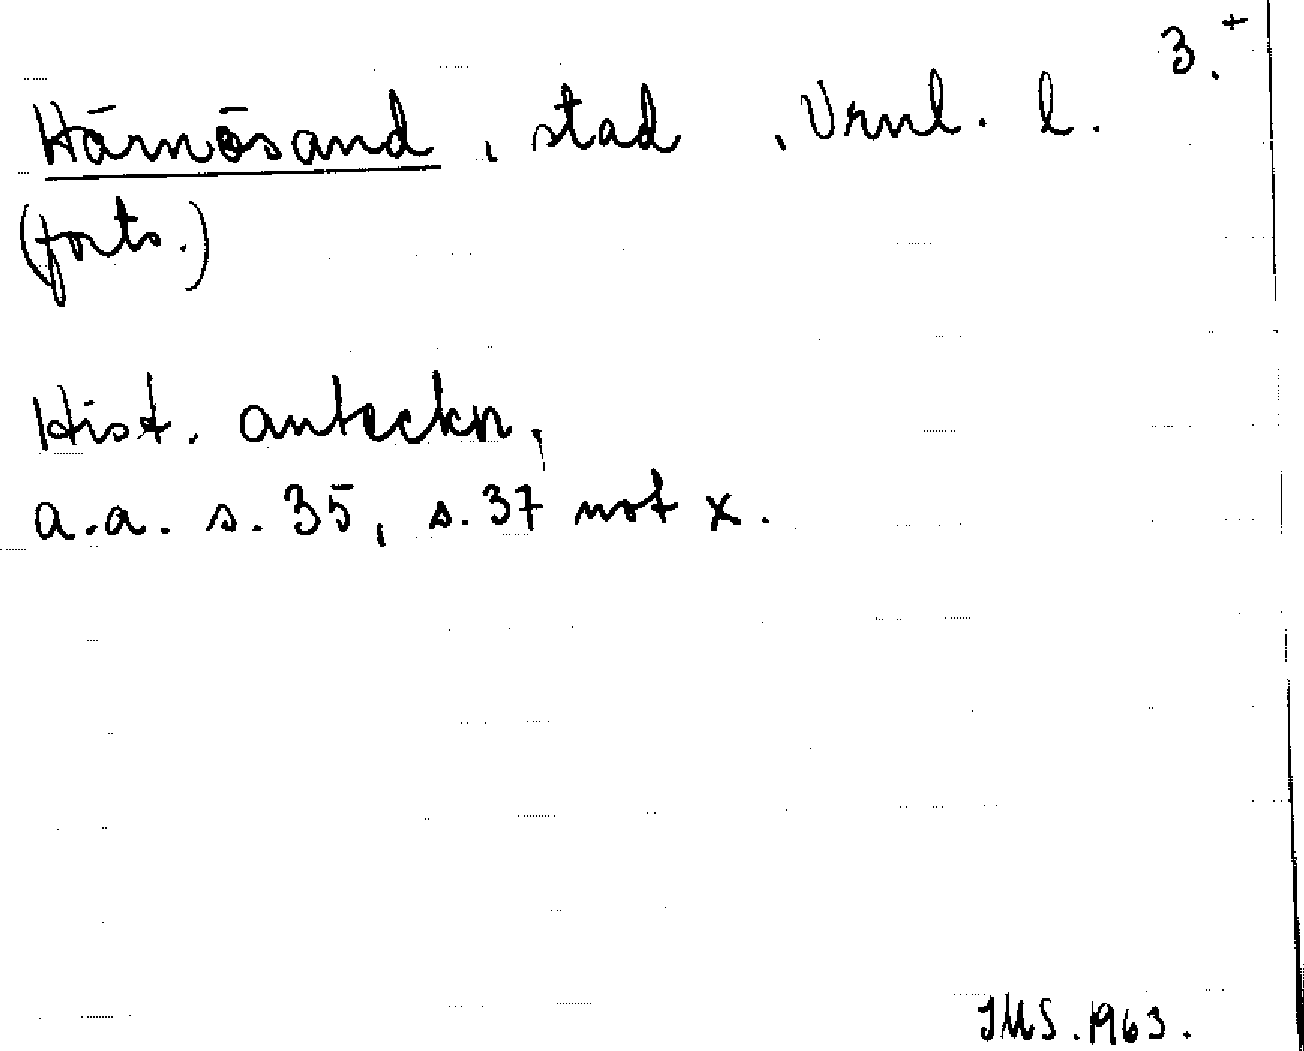 3.+
Härnösand, stad, Vrnl. l.
(forts.)
Hist. anteckn,
a.a. s. 35, s. 37 not x.
IMS. 1963.